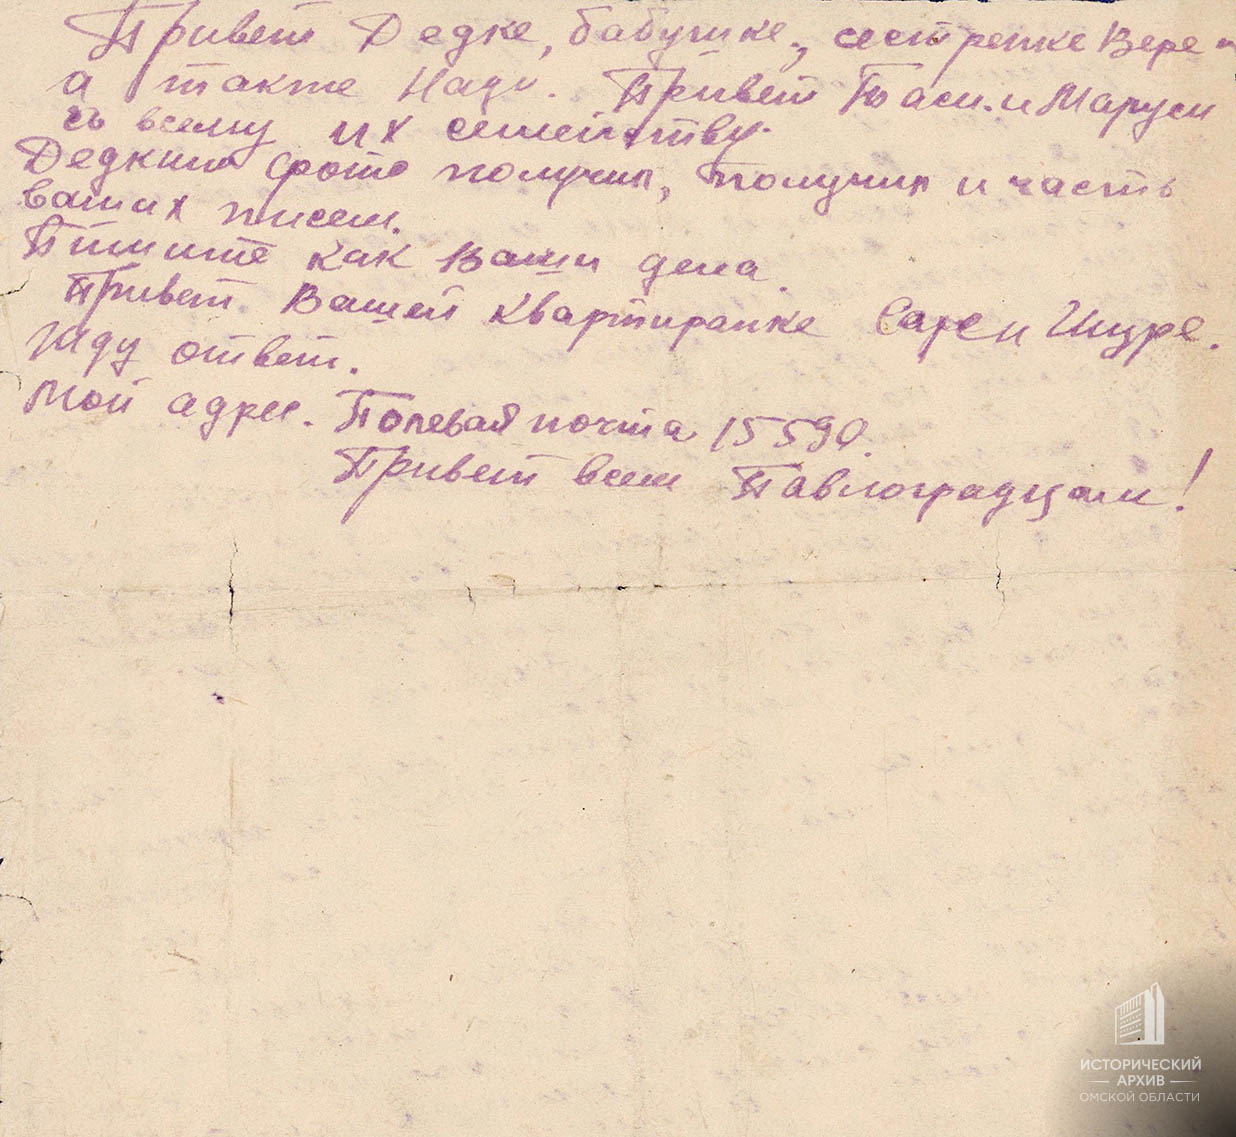 Привет Дедке, бабушке, сестренке Вере
а также Наде. Привет Тасе и Маруси
со всему их семейству.
Дедкино фото получил, получил и часть
ваших писем.
Пишите как Ваши дела.
Привет Вашей квартиранке
Жду ответ.
Мой адрес. Полевая почта 15590.
Привет всем Павлоградцам!
ИСТОРИЧЕСКИЙ
АРХИВ
ОМСКОЙ ОБЛАСТИ